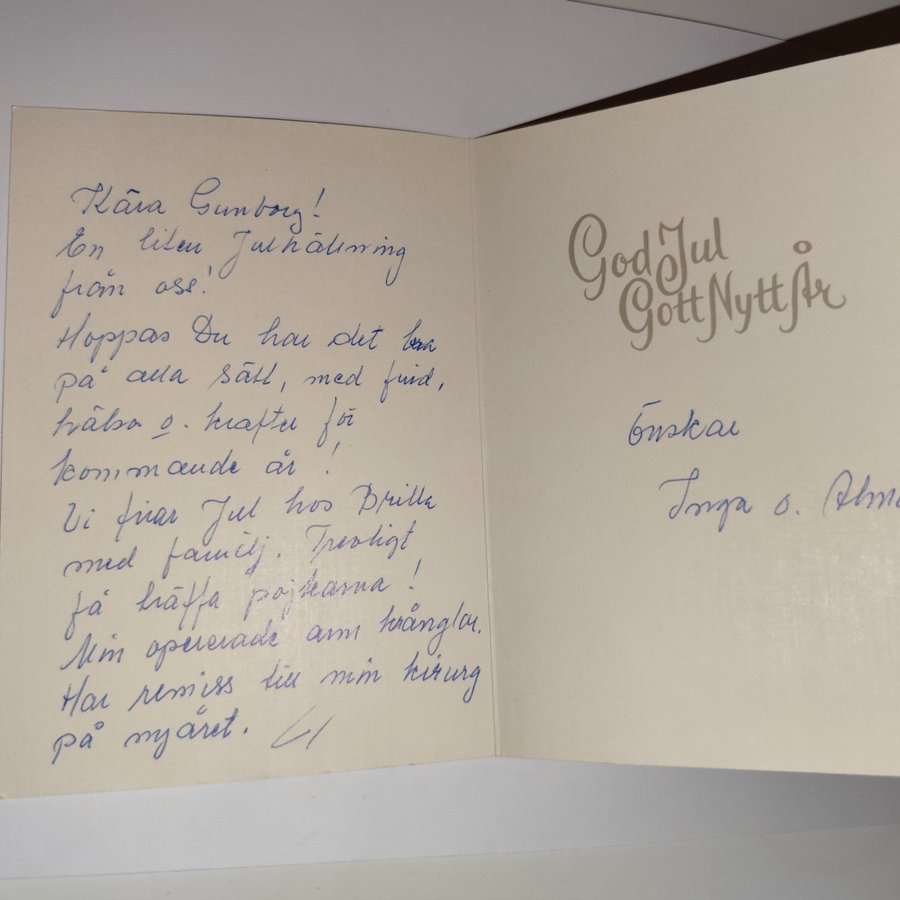 Kära Gunborg!
En liten Julhälsning
från oss!
Hoppas Du har det bra
på alla sätt, med frid,
hälsa o. krafter för
kommande år!
Vi firar Jul hos Britta
med familj. Trevligt
få träffa pojkarna!
Min opererade arm krånglar.
Har remiss till min kirurg
på nyåret.
God Jul
Gott Nytt År
önskar
Inga o.